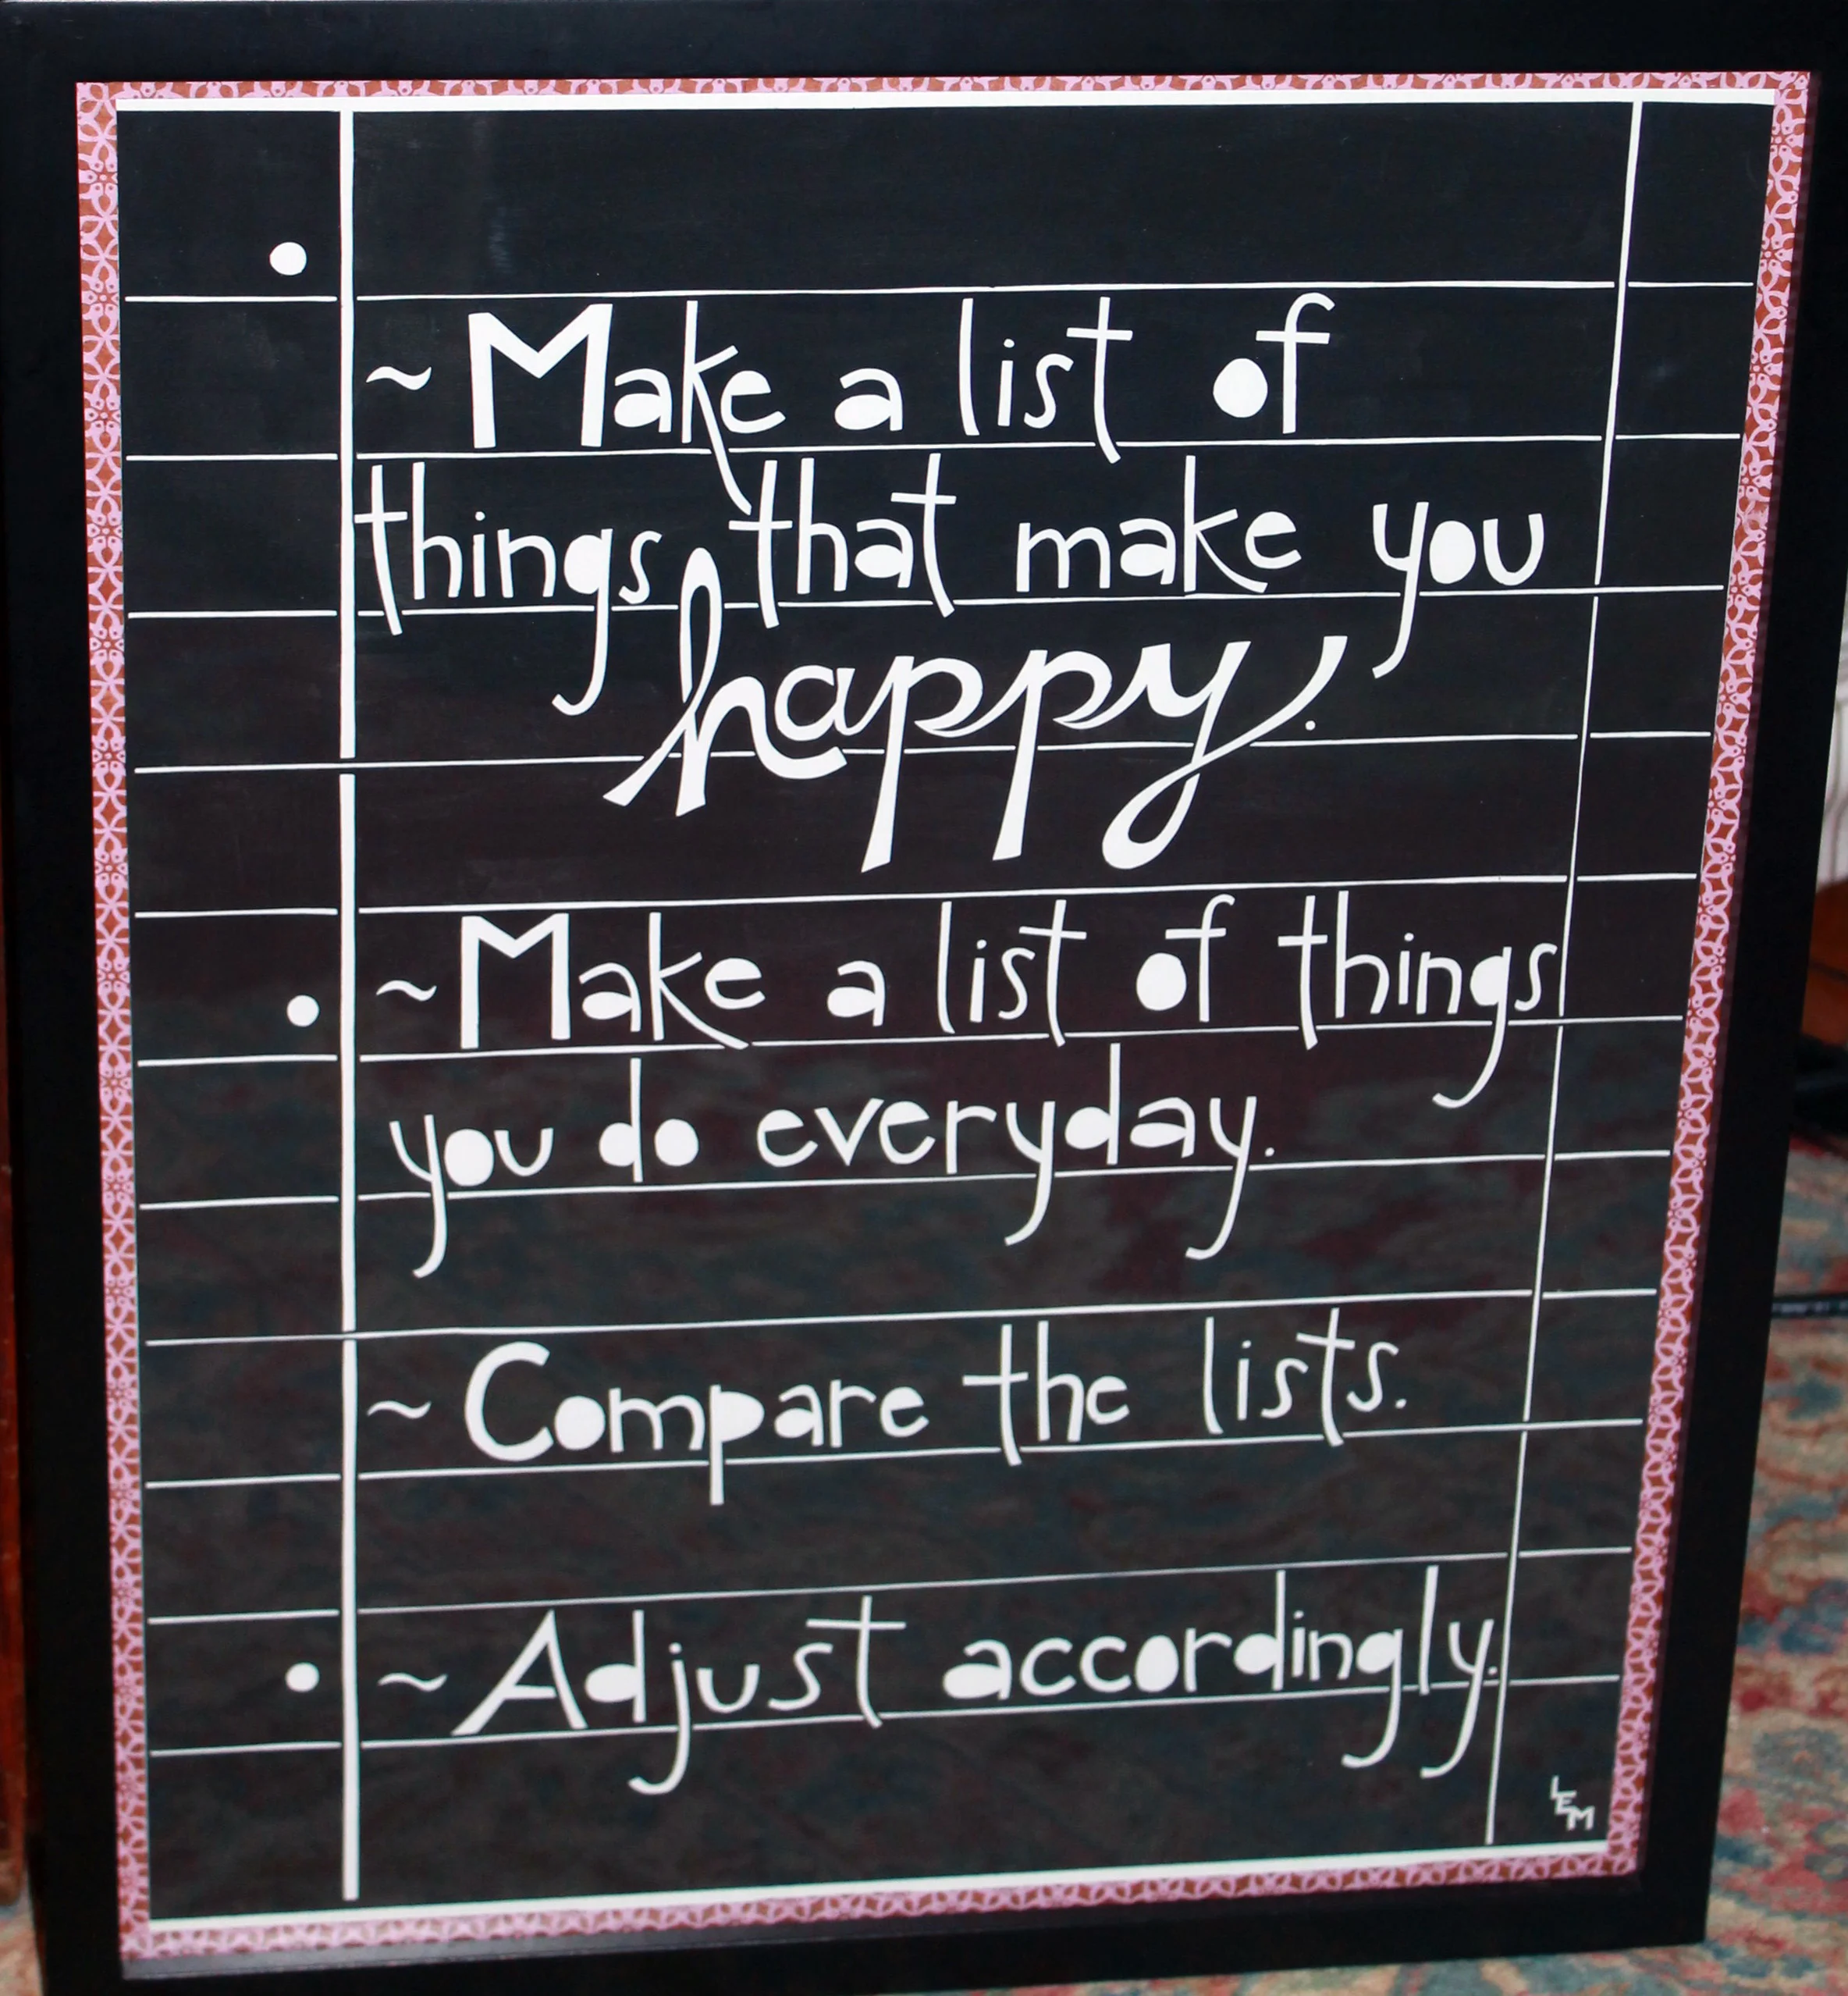 ~Make a list of
things that make you
happy.
~Make a list of things
you do everyday.
~Compare the lists.
~Adjust accordingly.
LEM